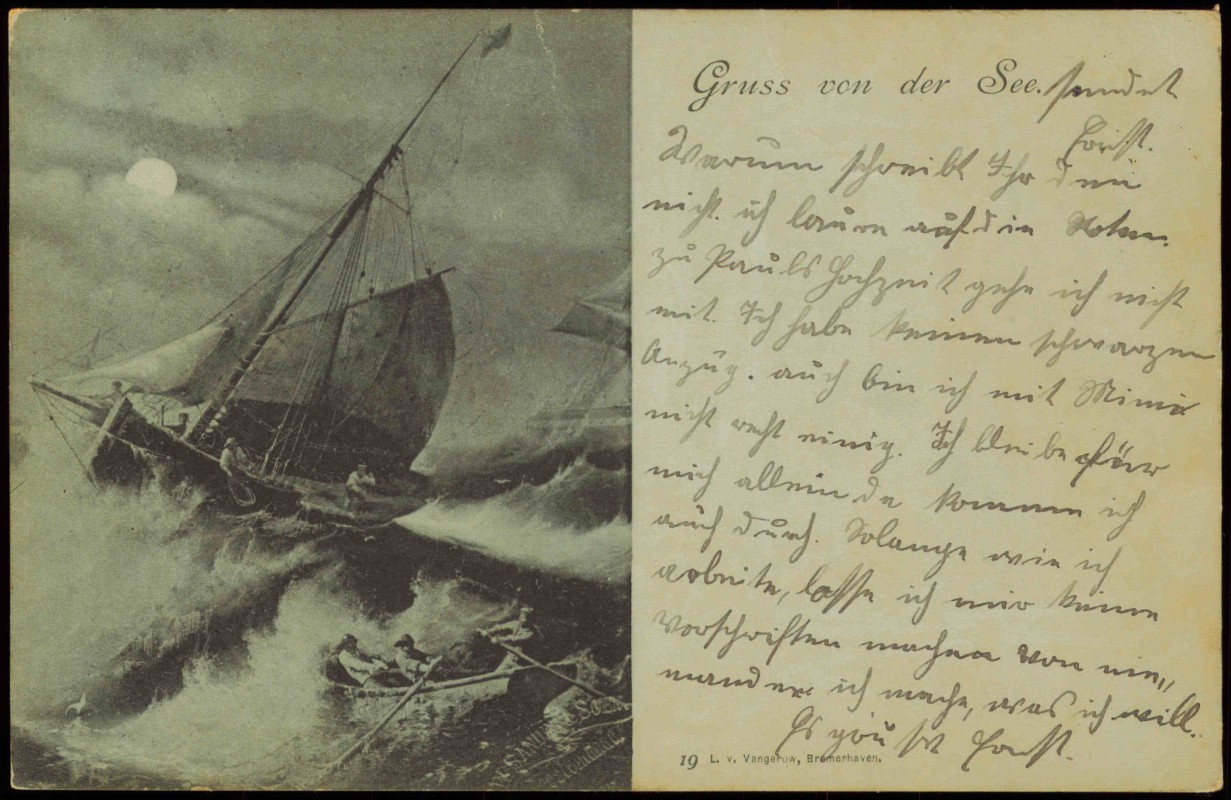 Gruss von der See. sendet
Horst.
Warum schreibt Ihr den
nicht. ich laure auf die
zu Pauls Hochzeit gehe ich nicht
mit. Ich habe keinen schwarzen
Anzug. auch bin ich mit
nicht recht einig. Ich bleibe für
mich allein da komme ich
auch durch. Solange wie ich
arbeite, lasse ich mir keine
Vorschriften machen von nie„
manden. ich mache, was ich will.
Es grüßt Horst.
19 L. v. Vangerow, Bremerhaven.